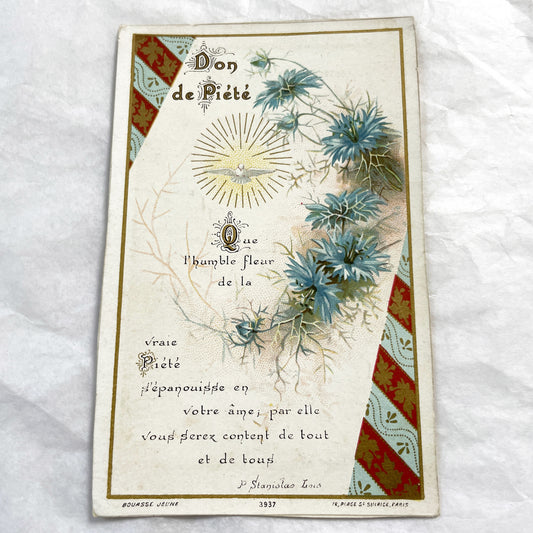 Don
de Piété
Que
l'humble fleur
de la
vraie
Piété
s'épanouisse en
votre âme; par elle
vous serez content de tout
et de tous
P. Stanislas
BOUASSE JEUNE
3937
16, PLACE St SULPICE, PARIS